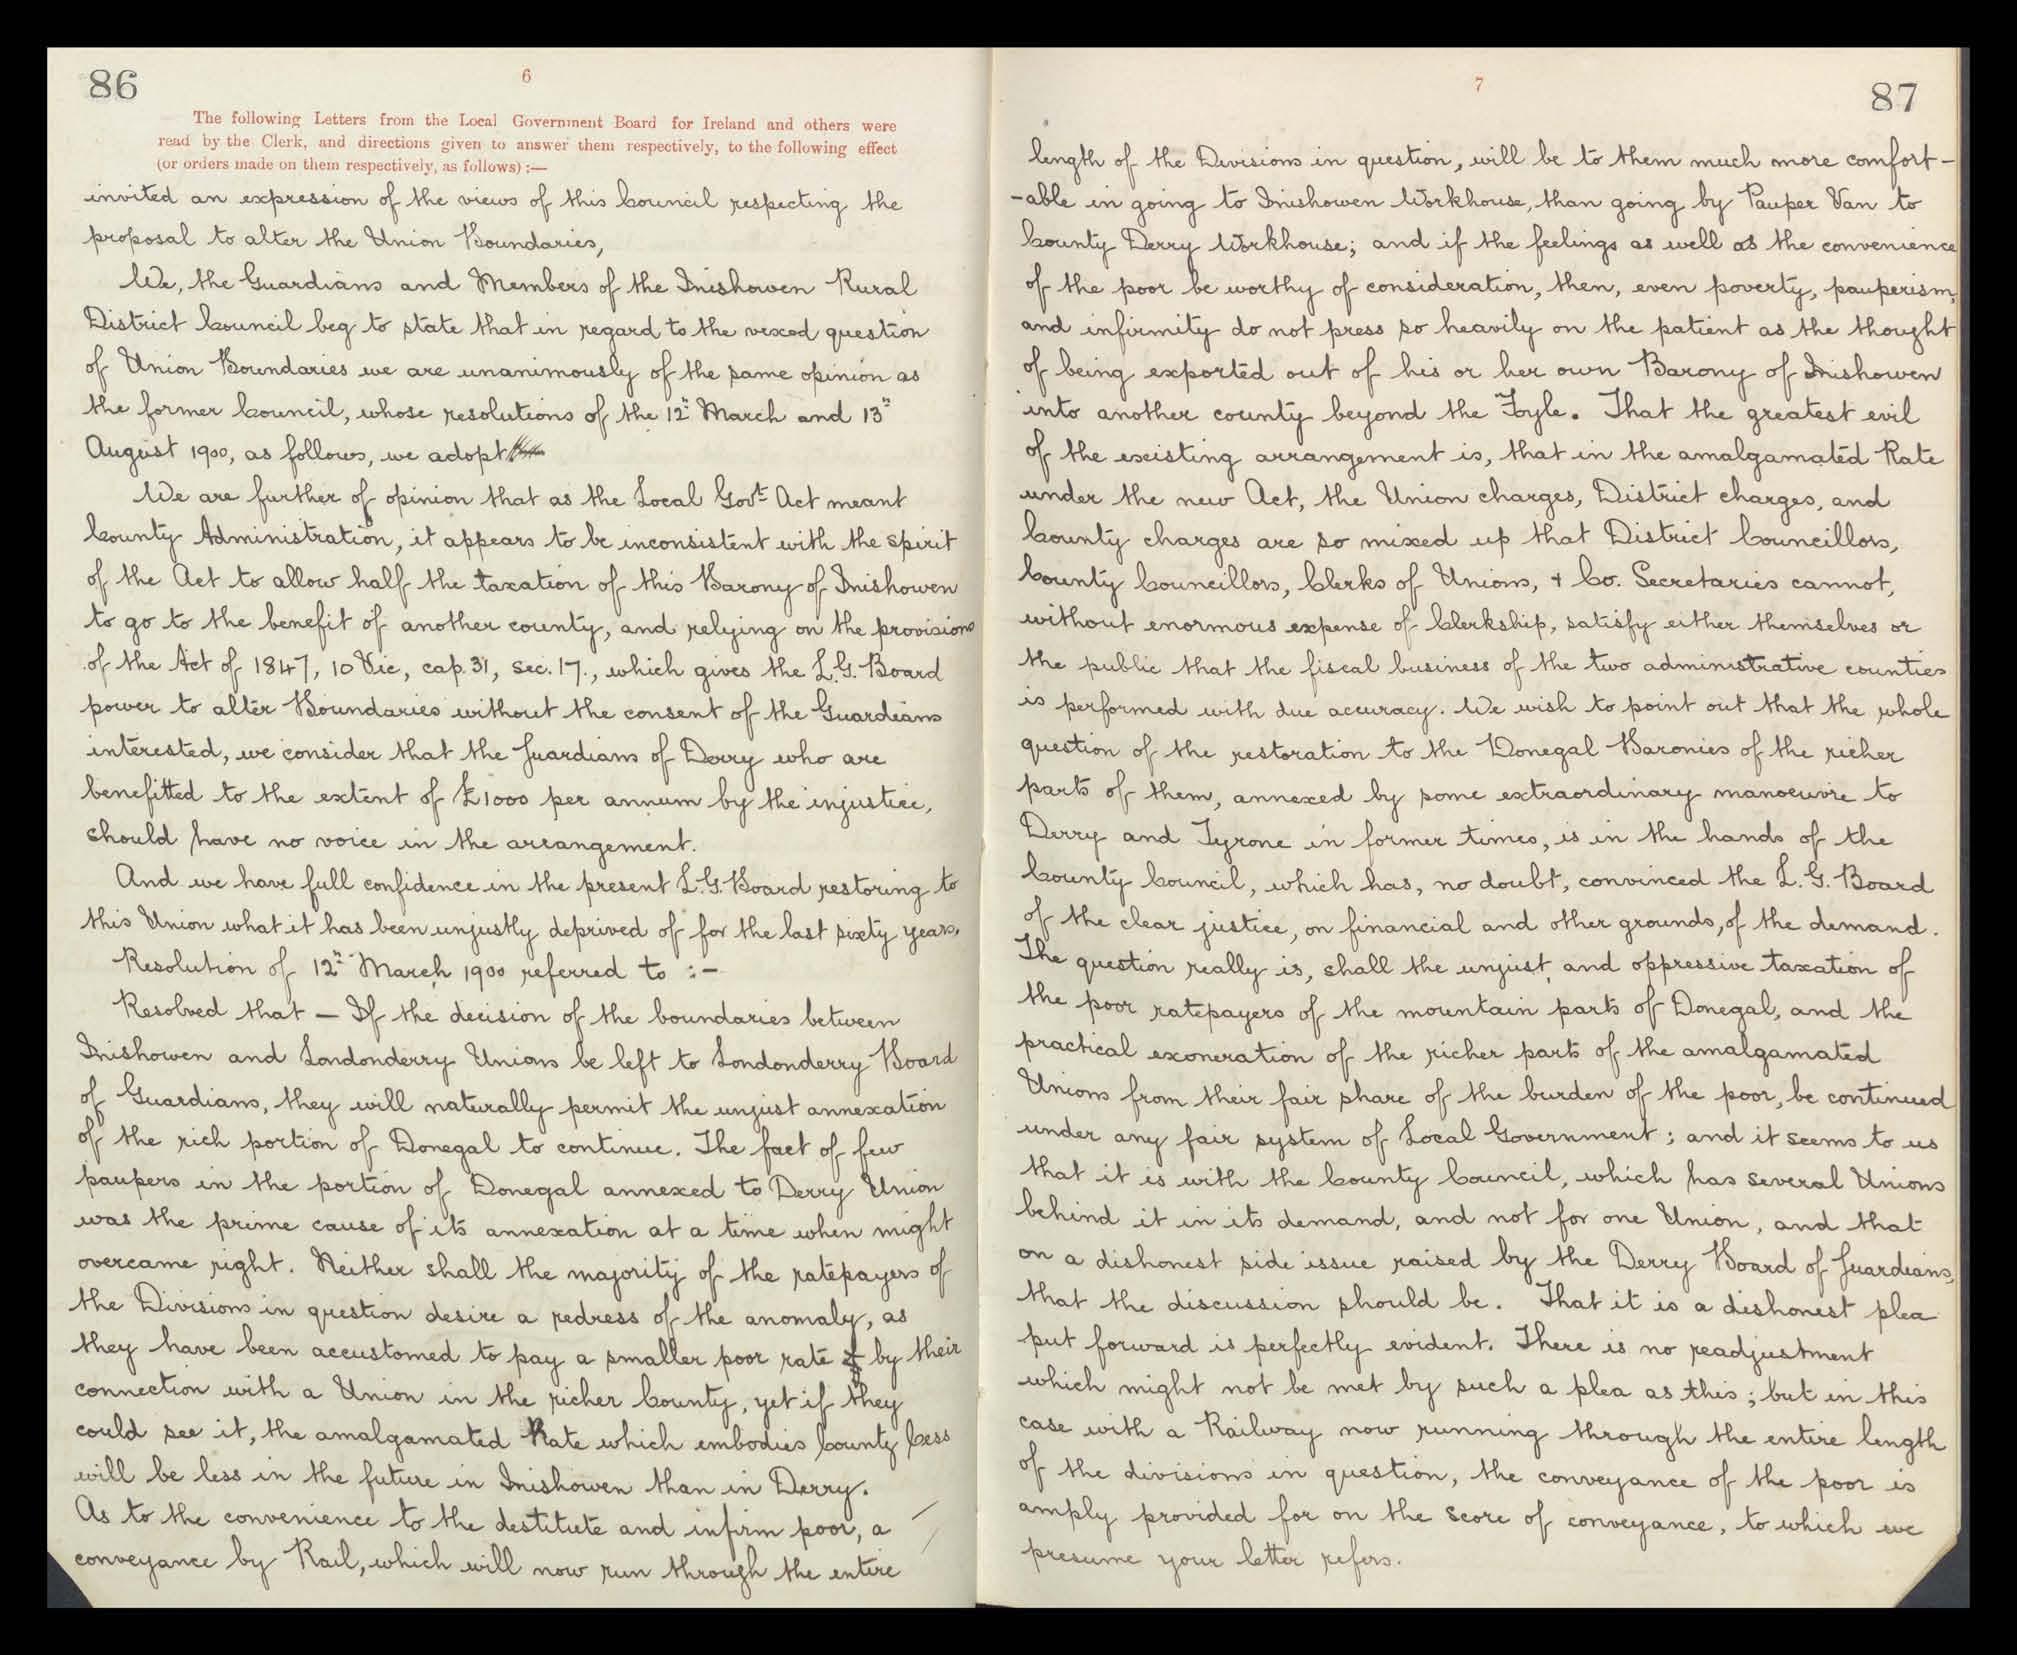 86
6
The following Letters from the Local Government Board for Ireland and others were
read by the Clerk, and directions given to answer them respectively, to the following effect
(or orders made on them respectively, as follows) :—
invited an expression of the views of this Council respecting the
proposal to alter the Union Boundaries,
We, the Guardians and Members of the Inishowen Rural
District Council beg to state that in regard to the vexed question
of Union Boundaries we are unanimously of the same opinion as
the former Council, whose resolutions of the 12" March and 13"
August 1900, as follows, we adopt
We are further of opinion that as the Local Govt Act meant
County Administration, it appears to be inconsistent with the spirit
of the Act to allow half the taxation of this Barony of Inishowen
to go to the benefit of another county, and relying on the provisions
of the Act of 1847, 10 Vic, cap. 31, sec. 17., which gives the L.G. Board
power to alter Boundaries without the consent of the Guardians
interested, we consider that the Guardians of Derry who are
benefitted to the extent of £1000 per annum by the injustice,
should have no voice in the arrangement.
And we have full confidence in the present L.G. Board restoring to
this Union what it has been unjustly deprived of for the last sixty years.
Resolution of 12" March 1900 referred to :-
Resolved that — If the decision of the boundaries between
Inishowen and Londonderry Unions be left to Londonderry Board
of Guardians, they will naturally permit the unjust annexation
of the rich portion of Donegal to continue. The fact of few
paupers in the portion of Donegal annexed to Derry Union
was the prime cause of its annexation at a time when might
overcame right. Neither shall the majority of the ratepayers of
the Divisions in question desire a redress of the anomaly, as
they have been accustomed to pay a smaller poor rate by their
connection with a Union in the richer County, yet if they
could see it, the amalgamated Rate which embodies County Cess
will be less in the future in Inishowen than in Derry.
As to the convenience to the destitute and infirm poor, a
conveyance by Rail, which will now run through the entire
7
87
length of the Divisions in question, will be to them much more comfort-
-able in going to Inishowen Workhouse, than going by Pauper Van to
County Derry Workhouse; and if the feelings as well as the convenience
of the poor be worthy of consideration, then, even poverty, pauperism,
and infirmity do not press so heavily on the patient as the thought
of being exported out of his or her own Barony of Inishowen
into another county beyond the Foyle. That the greatest evil
of the existing arrangement is, that in the amalgamated Rate
under the new Act, the Union charges, District charges, and
County charges are so mixed up that District Councillors,
County Councillors, Clerks of Unions, & Co. Secretaries cannot,
without enormous expense of Clerkship, satisfy either themselves or
the public that the fiscal business of the two administrative counties
is performed with due accuracy. We wish to point out that the whole
question of the restoration to the Donegal Baronies of the richer
parts of them, annexed by some extraordinary manoeuvre to
Derry and Tyrone in former times, is in the hands of the
County Council, which has, no doubt, convinced the L.G. Board
of the clear justice, on financial and other grounds, of the demand.
The question really is, shall the unjust and oppressive taxation of
the poor ratepayers of the mountain parts of Donegal, and the
practical exoneration of the richer parts of the amalgamated
Unions from their fair share of the burden of the poor, be continued
under any fair system of Local Government; and it seems to us
that it is with the County Council, which has several Unions
behind it in its demand, and not for one Union, and that
on a dishonest side issue raised by the Derry Board of Guardians,
that the discussion should be. That it is a dishonest plea
put forward is perfectly evident. There is no readjustment
which might not be met by such a plea as this; but in this
case with a Railway now running through the entire length
of the divisions in question, the conveyance of the poor is
amply provided for on the score of conveyance, to which we
presume your letter refers.